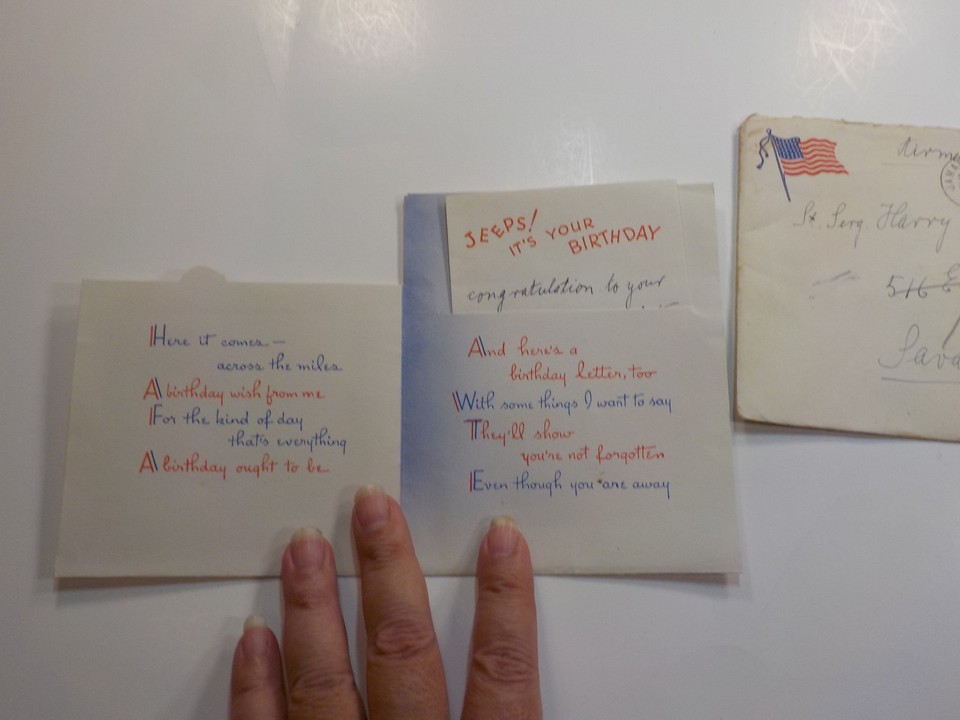 Here it comes —
across the miles
A birthday wish from me
For the kind of day
that's everything
A birthday ought to be
JEEPS! IT'S YOUR BIRTHDAY
congratulation to your
And here's a
birthday letter, too
With some things I want to say
They'll show
you're not forgotten
Even though you are away
St. Serg. Harry
516 E